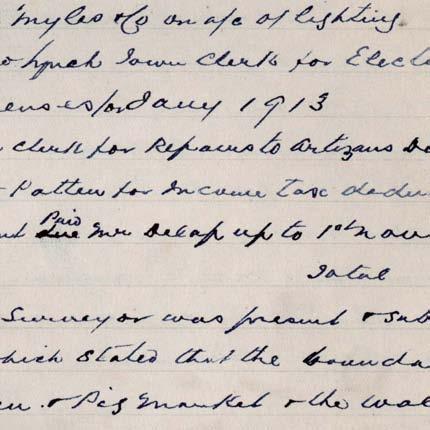 Myles & Co on a/c of lighting
Lynch Town Clerk for Elect
enses for Jany 1913
Clerk for Repairs to Artizans D
Patten for Income Tax dedu
Paid
Mr Delap up to 1st Nov
Total
Surveyor was present & sub
which stated that the bounda
& Pig Market & the wal